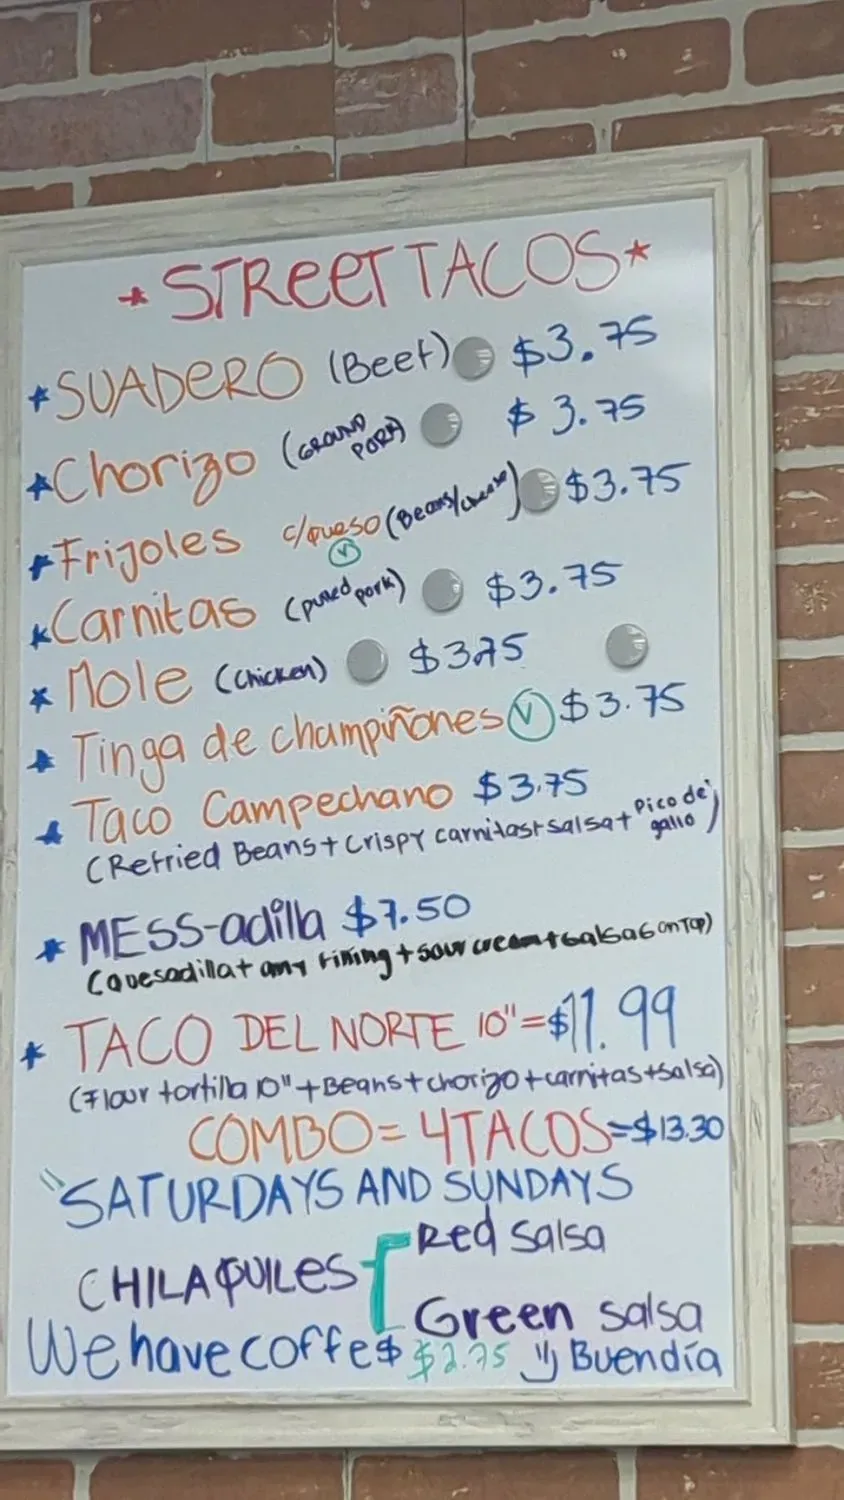 STREET TACOS
SUADERO (Beef) $3.75
Chorizo (GROUND PORK) $3.75
Frijoles c/queso (Beans/cheese) V $3.75
Carnitas (pulled pork) $3.75
Mole (Chicken) $3.75
Tinga de champiñones V $3.75
Taco Campechano $3.75
(Refried Beans + crispy carnitas + salsa + Pico de gallo)
MESS-adilla $7.50
(Quesadilla + any filling + sour cream + salsas on Top)
TACO DEL NORTE 10" = $11.99
(Flour tortilla 10" + Beans + chorizo + carnitas + salsa)
COMBO = 4 TACOS = $13.30
"SATURDAYS AND SUNDAYS
CHILAQUILES Red salsa
Green salsa
We have coffe $ $2.75 Buendía